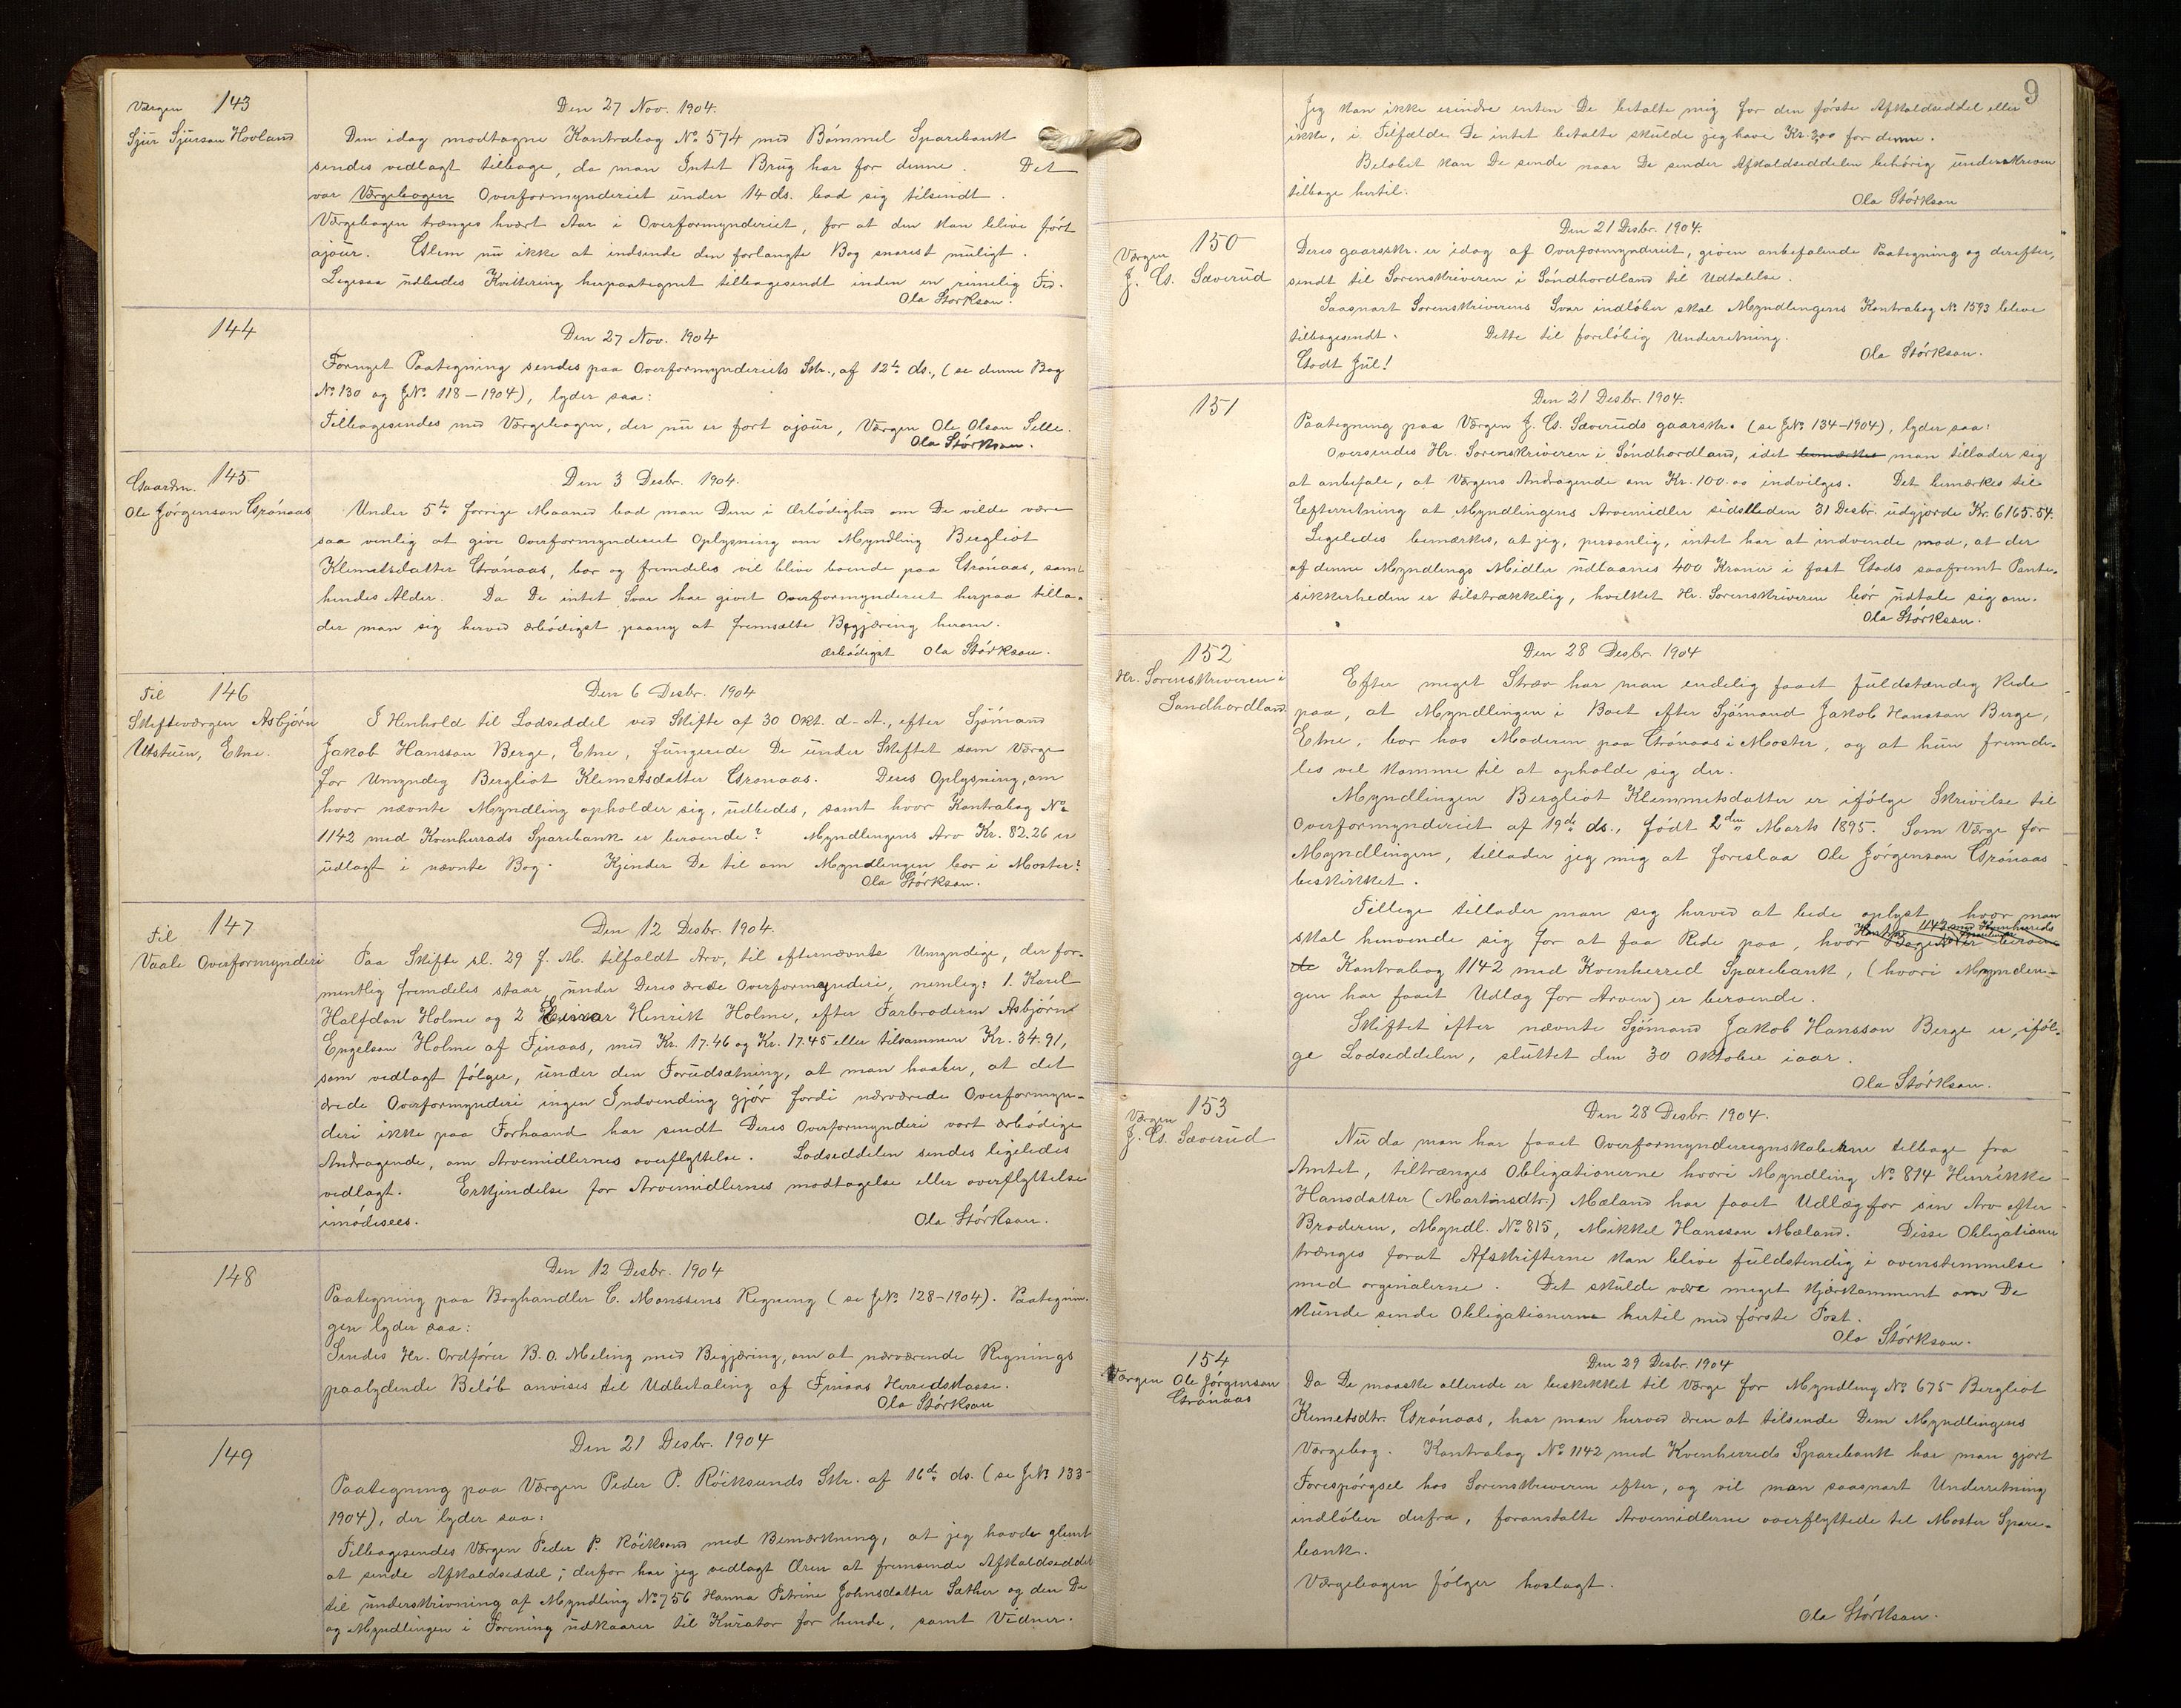 Værgen 143
Sjur Sjurson Hovland
Den 27 Nov. 1904.
Den idag modtagne Kontrabog No 574 med Bömmel Sparebank
sendes vedlagt tilbage, da man Intet Brug har for denne. Det
var Værgebogen Overformynderiet under 14 ds. bad sig tilsendt.
Værgebogen trænges hvert Aar i Overformynderiet, for at den kan blive fört
ajour. Glem nu ikke at indsende den forlangte Bog snarest muligt.
Ligesaa udbedes Kvittering herpaategnet tilbagesendt inden en rimelig Tid.
Ola Störkson.
144
Den 27 Nov. 1904
Fornyet Paategning sendes paa Overformynderiets Skr., af 12te ds., (se denne Bog
No 130 og JNo 118-1904), lyder saa:
Tilbagesendes med Værgebogen, der nu er fort ajour, Værgen Ole Olson Selle.
Ola Störkson.
145.
Gaardm.
Ole Jørgenson Grönaas
Den 3 Desbr. 1904.
Under 5te forrige Maaned bad man Dem i Ærbödighed om De vilde være
saa venlig at give Overformynderiet Oplysning om Myndling Bergliot
Klemetsdatter Grönaas, bor og fremdeles vil blive boende paa Grönaas, samt
hendes Alder. Da De intet Svar har givet Overformynderiet herpaa tilla-
der man sig herved ærbödigst paany at fremsætte Begjæring herom.
ærbödigst Ola Störkson.
Til 146
Skifteværgen Asbjörn
Utstuen, Etne.
Den 6 Desbr. 1904
I Henhold til Lodseddel ved Skifte af 30 Okt. d. A., efter Sjömand
Jakob Hansson Berge, Etne, fungerede De under Skiftet som Værge
for Umyndig Bergliot Klemetsdatter Gronaas. Deres Oplysning, om
hvor nævnte Myndling opholder sig, udbedes, samt hvor Kontrabog No
1142 med Kvenherrads Sparebank er beroende? Myndlingens Arv Kr. 82.26 er
udlagt i nævnte Bog. Kjender De til om Myndlingen bor i Moster?
Ola Störkson.
Til 147
Vaale Overformynderi
Den 12 Desbr. 1904.
Paa Skifte sl. 29 f. M. tilfaldt Arv, til efternævnte Umyndige, der for-
mentlig fremdeles staar under Deres ærede Overformynderi, nemlig: 1. Karel
Halfdan Holme og 2 Einar Henrik Holme, efter Farbroderen Asbjörn
Engelson Holme af Finaas, med Kr. 17.46 og Kr. 17.45 eller tilsammen Kr. 34.91,
som vedlagt fölger, under den Forudsætning, at man haaber, at det
ærede Overformynderi ingen Indvending gjör fordi nærværede Overformyn-
deri ikke paa Forhaand har sendt Deres Overformynderi vort ærbödige
Andragende, om Arvemidlernes overflyttelse. Lodseddelen sendes ligeledes
vedlagt. Erkjendelse for Arvemidlernes modtagelse eller overflyttelse
imödesees.
Ola Störkson.
148
Den 12 Desbr. 1904
Paategning paa Boghandler C. Monssens Regning (se JNo 128-1904). Paategnin-
gen lyder saa:
Sendes Hr. Ordförer B. O. Meling med Begjæring, om at nærværende Regnings
paalydende Belöb anvises til Udbetaling af Finaas Herredskasse.
Ola Störkson
149
Den 21 Desbr. 1904
Paategning paa Værgen Peder P. Röiksunds Skr. af 16de ds. (se JNo 133-
1904), der lyder saa:
Tilbagesendes Værgen Peder P. Röiksund med Bemærkning, at jeg havde glemt
at sende Afkaldseddel; derfor har jeg vedlagt Æren at fremsende Afkaldseddel
til underskrivning af Myndling No 756 Hanna Petrine Johnsdatter Sæther og den De
og Myndlingen i Forening udkaarer til Kurator for hende, samt Vidner.
9
Jeg kan ikke erindre enten De betalte mig for den förste Afkaldseddel eller
ikke, i Tilfælde De intet betalte skulde jeg have Kr. 2,00 for denne.
Belöbet kan De sende naar De sender Afkaldseddelen behörig underskreven
tilbage hertil.
Ola Störkson
150
Værgen
J. G. Sæverud
Den 21 Desbr. 1904.
Deres gaarsskr. er idag af Overformynderiet, given anbefalende Paategning og derefter,
sendt til Sorenskriveren i Söndhordland til Udtalelse.
Saasnart Sorenskriverens Svar indlöber skal Myndlingens Kontrabog No 1593 blive
tilbagesendt. Dette til forelöbig Underretning.
Godt Jul!
Ola Störkson.
151
Den 21 Desbr. 1904.
Paategning paa Værgen J. G. Sæveruds gaarsskr. (se JNo 134-1904), lyder saa:
Oversendes Hr. Sorenskriveren i Söndhordland, idet bemærkes man tillader sig
at anbefale, at Værgens Andragende om Kr. 100.00 indvilges. Det bemærkes til
Eefterretning at Myndlingens Arvemidler sidstleden 31 Desbr. udgjorde Kr. 6165.54.
Ligeledes bemærkes, at jeg, personlig, intet har at indvende mod, at der
af denne Myndlings Midler udlaanes 400 Kroner i fast Gods saafremt Pante-
sikkerheden er tilstrækkelig, hvilket Hr. Sorenskriveren bör udtale sig om.
Ola Störkson.
152
Hr. Sorenskriveren i
Söndhordland
Den 28 Desbr. 1904
Efter meget Stræv har man endelig faaet fuldstændig Rede
paa, at Myndlingen i Boet efter Sjömand Jakob Hansson Berge,
Etne, bor hos Moderen paa Grönaas i Moster, og at hun fremde-
les vil komme til at opholde sig der.
Myndlingen Bergliot Klemmetsdatter er ifölge Skrivelse til
Overformynderiet af 19de ds., födt 2den Marts 1895. Som Værge for
Myndlingen, tillader jeg mig at foreslaa Ole Jörgenson Grönaas
beskikket.
Tillige tillader man sig herved at bede oplyst hvor man
skal henvende sig for at faa Rede paa, hvor
Kontrabog 1142 med Kvenherred Sparebank, (hvori Mynden-
gen har faaet Udlæg for Arven) er beroende.
Skiftet efter nævnte Sjömand Jakob Hansson Berge er, iföl-
ge Lodseddelen, sluttet den 30 Oktober iaar.
Ola Störkson.
153
Værgen
J. G. Sæverud
Den 28 Desbr. 1904.
Nu da man har faaet Overformynderregnskaberne tilbage fra
Amtet, tiltrænges Obligationerne hvori Myndling No 814 Henrikke
Hansdatter (Martinsdtr.) Mæland har faaet Udlæg for sin Arv efter
Broderen, Myndl. No 815, Mikkel Hansson Mæland. Disse Obligationer
trænges forat Afskrifterne kan blive fuldstendig i ovenstemmelse
med orginalerne. Det skulde være meget kjærkomment om De
kunde sende Obligationerne hertil med förste Post.
Ola Störkson.
154
Værgen Ole Jörgenson
Grönaas
Den 29 Desbr. 1904
Da De maaske allerede er beskikket til Værge for Myndling No 675 Bergliot
Kemetsdtr. Grönaas, har man herved æren at tilsende Dem Myndlingens
Værgebog. Kontrabog No 1142 med Kvenherreds Sparebank har man gjort
Forespörgsel hos Sorenskriveren efter, og vil man saasnart Underretning
indlöber derfra, foranstalte Arvemidlerne overflyttede til Moster Spare-
bank.
Værgebogen fölger hoslagt.
Ola Störkson.